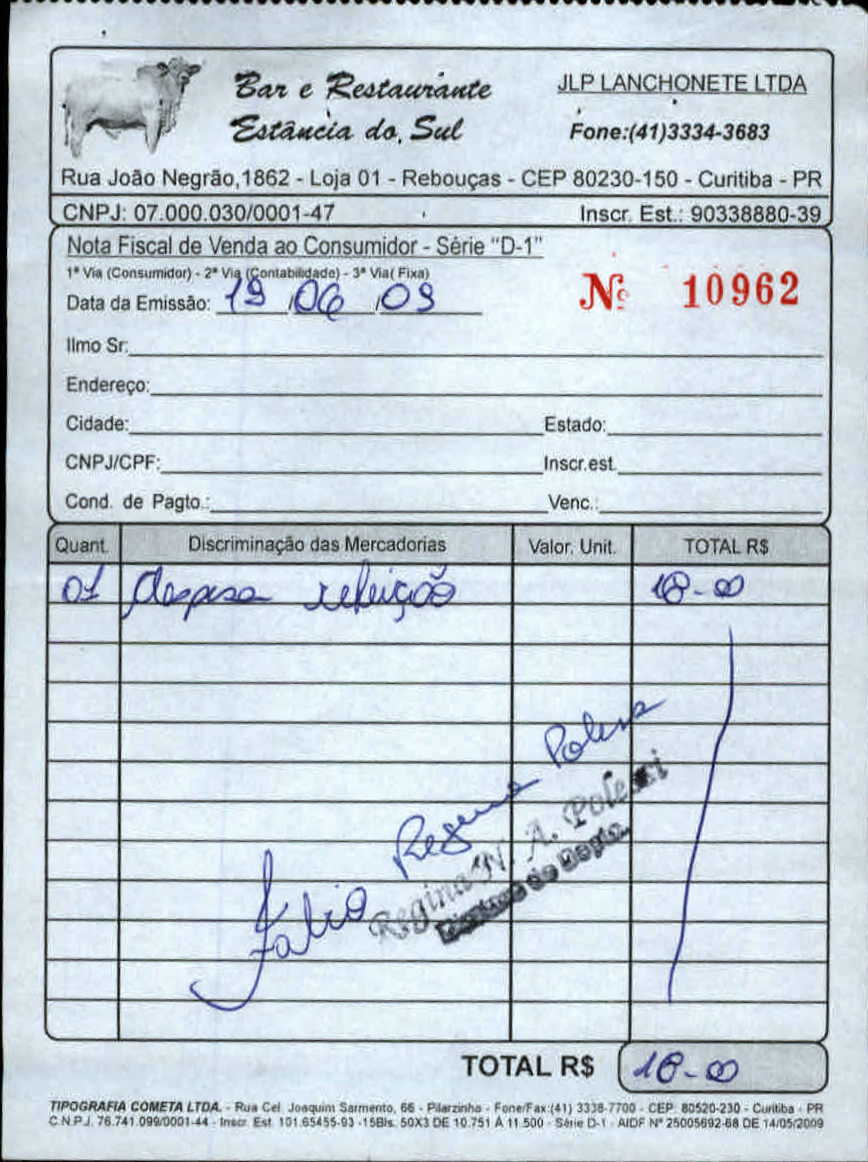 Bar e Restaurante
Estância do Sul
JLP LANCHONETE LTDA
Fone:(41)3334-3683
Rua João Negrão,1862 - Loja 01 - Rebouças - CEP 80230-150 - Curitiba - PR
CNPJ: 07.000.030/0001-47 Inscr. Est.: 90338880-39
Nota Fiscal de Venda ao Consumidor - Série "D-1"
1ª Via (Consumidor) - 2ª Via (Contabilidade) - 3ª Via( Fixa)
Nº 10962
Data da Emissão: 19/06/09
Ilmo Sr:
Endereço:
Cidade: Estado:
CNPJ/CPF: Inscr.est.
Cond. de Pagto.: Venc.:
Quant. Discriminação das Mercadorias Valor. Unit. TOTAL R$
01 despesa refeição 18-00
Regina
Fabio
Regina N. A. Polenzi
Diretora de Depto.
TOTAL R$ 18-00
TIPOGRAFIA COMETA LTDA. - Rua Cel. Joaquim Sarmento, 66 - Pilarzinho - Fone/Fax:(41) 3338-7700 - CEP: 80520-230 - Curitiba - PR
C.N.P.J. 76.741.099/0001-44 - Inscr. Est. 101.65455-93 -15Bls. 50X3 DE 10.751 À 11.500 - Série D-1 - AIDF Nº 25005692-68 DE 14/05/2009